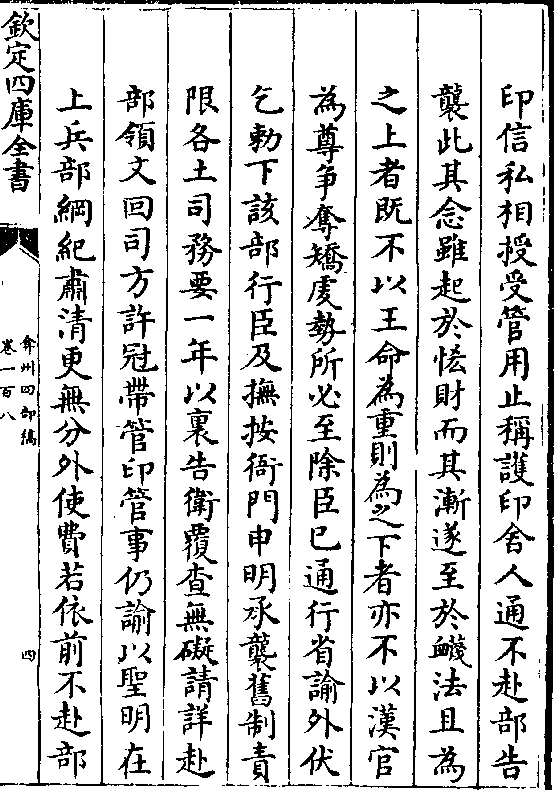 印信私相授受管用止稱護印舍人通不赴部告
襲此其念雖起於恡財而其漸遂至於衊法且為
之上者既不以王命為重則為之下者亦不以漢官
為尊爭奪矯虔勢所必至除臣已通行省諭外伏
乞勅下該部行臣及撫按衙門申明承襲舊制責
限各土司務要一年以裏告衛覆查無礙請詳赴
部領文回司方許冠帶管印管事仍諭以聖明在
上兵部綱紀肅清更無分外使費若依前不赴部
欽定四庫全書
弇州四部稿
卷一百八
四